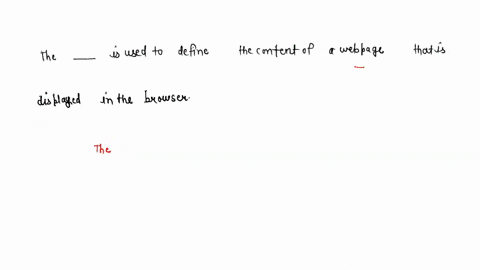 The ___ is used to define the content of a webpage that is
displayed in the browser.
The